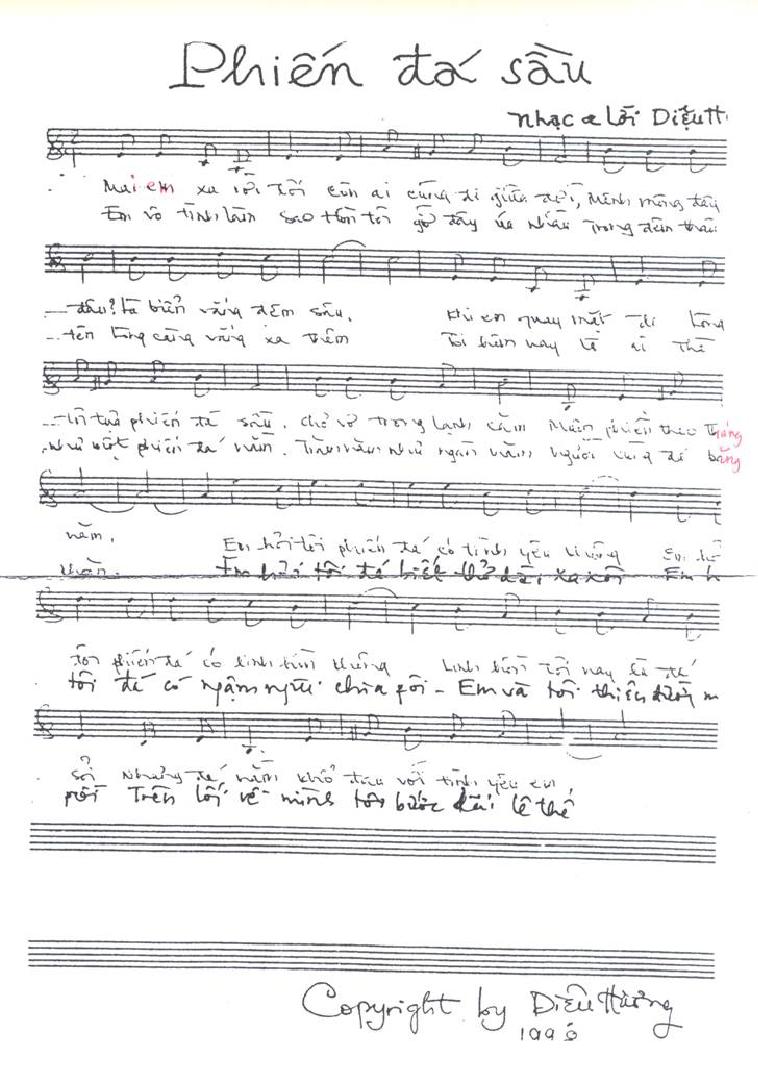 Phiến đá sầu
Nhạc & Lời Diệu H
Mai em xa rồi tôi còn ai cùng đi giữa đời, Mênh mông đây
Em vô tình lắm sao hồn tôi gỗ đây úa nhàu Trong đêm thâu
đâu? là biển vắng đêm sâu. Khi em quay mặt đi lòng
tên lòng càng vắng xa thêm Tôi hôm nay là ai thế
tôi tựa phiến đá sầu. Chơ vơ trong lạnh căm Muộn phiền theo tháng
như một phiến đá nằm. Trăm năm như ngàn năm, người cũng đá bằng
năm. Em hỏi tôi phiến đá có tình yêu không Em hỏi
Em hỏi tôi đá biết thở dài xa xôi Em h
tôi phiến đá có linh hồn không Linh hồn tôi nay là đá
tôi đá có ngậm ngùi chia phôi - Em và tôi thiên đường m
sỏi Nhưng đá nằm khổ đau với tình yêu em
rồi Trên lối về mình tôi bước dài lê thê
Copyright by Diệu Hương
1996